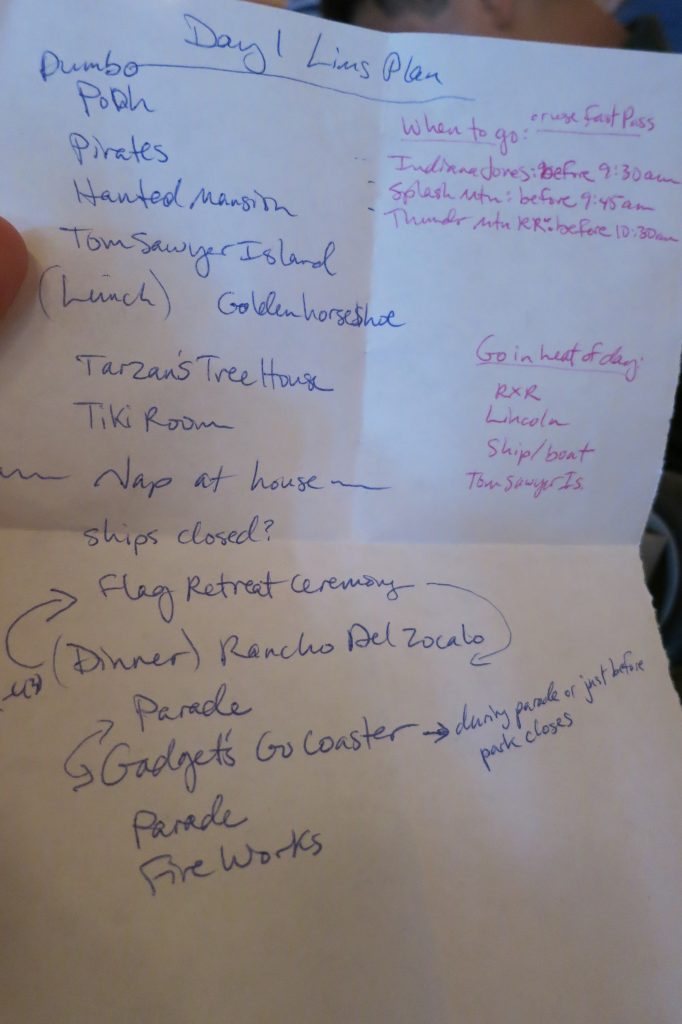 Day 1 Lins Plan
Dumbo
Pooh
Pirates
Hanted Mansion
Tom Sawyer Island
(Lunch) Golden horseshoe
Tarzan's Tree House
Tiki Room
Nap at house
ships closed?
Flag Retreat Ceremony
(Dinner) Rancho Del Zocalo
Parade
Gadget's Go Coaster → during parade or just before
park closes
Parade
Fire Works
When to go: or use Fast Pass
Indiana Jones: before 9:30am
Splash Mtn: before 9:45am
Thundr Mtn RR: before 10:30am
Go in heat of day:
RXR
Lincoln
Ship/boat
Tom Sawyer Is.